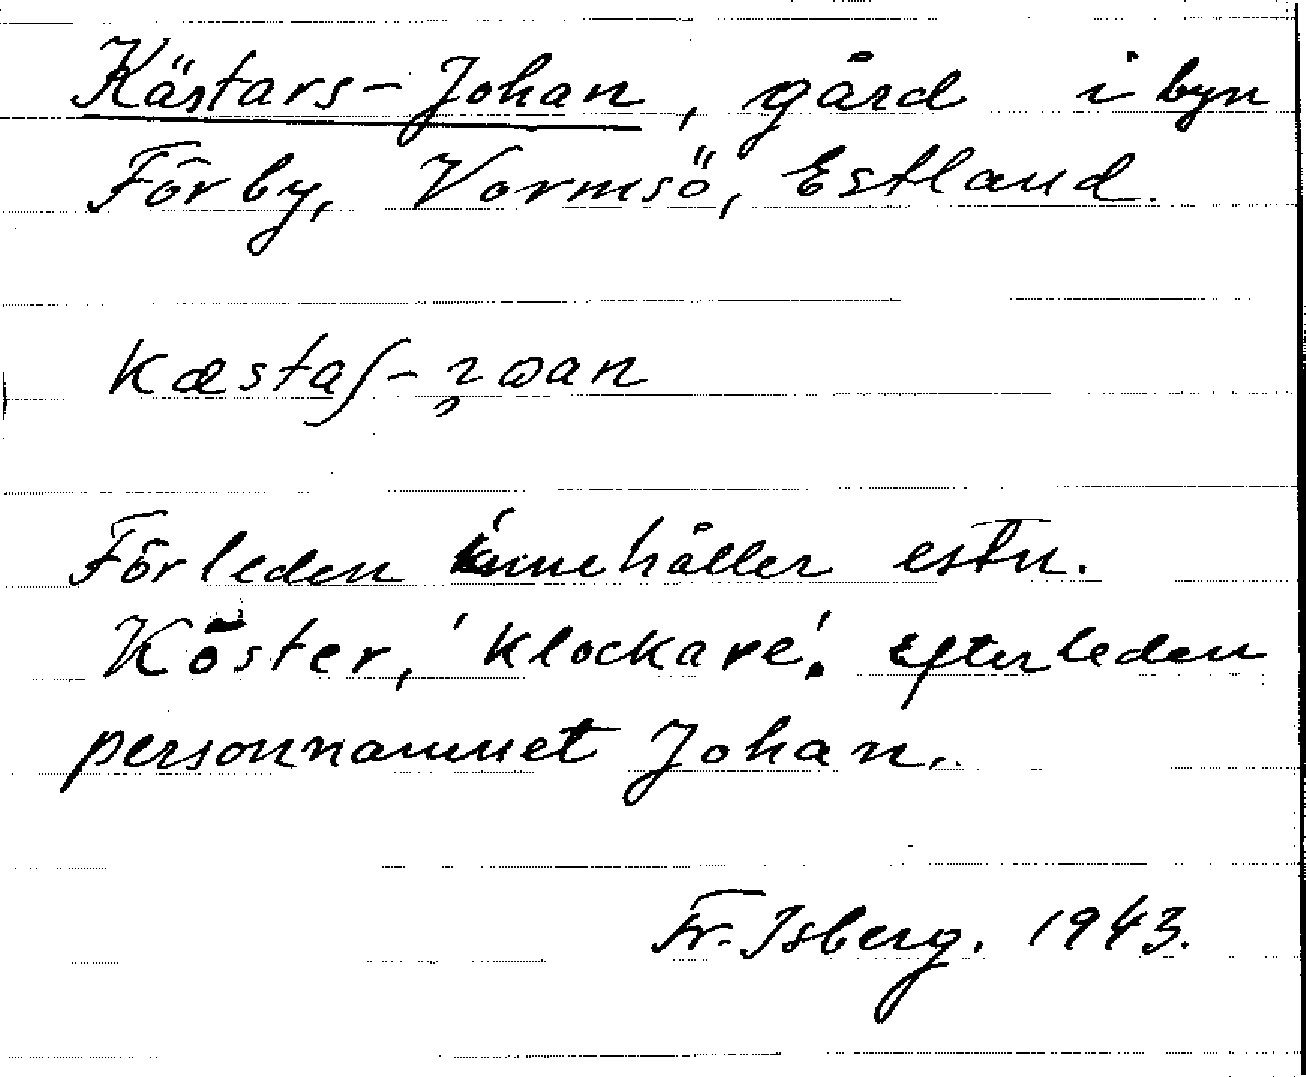 Kästars-Johan, gård i byn
Förby, Vormsö, Estland.
kæstaʃ-
Förleden innehåller estn.
Köster, 'klockare'. Efterleden
personnamnet Johan.
Fr. Isberg. 1943.